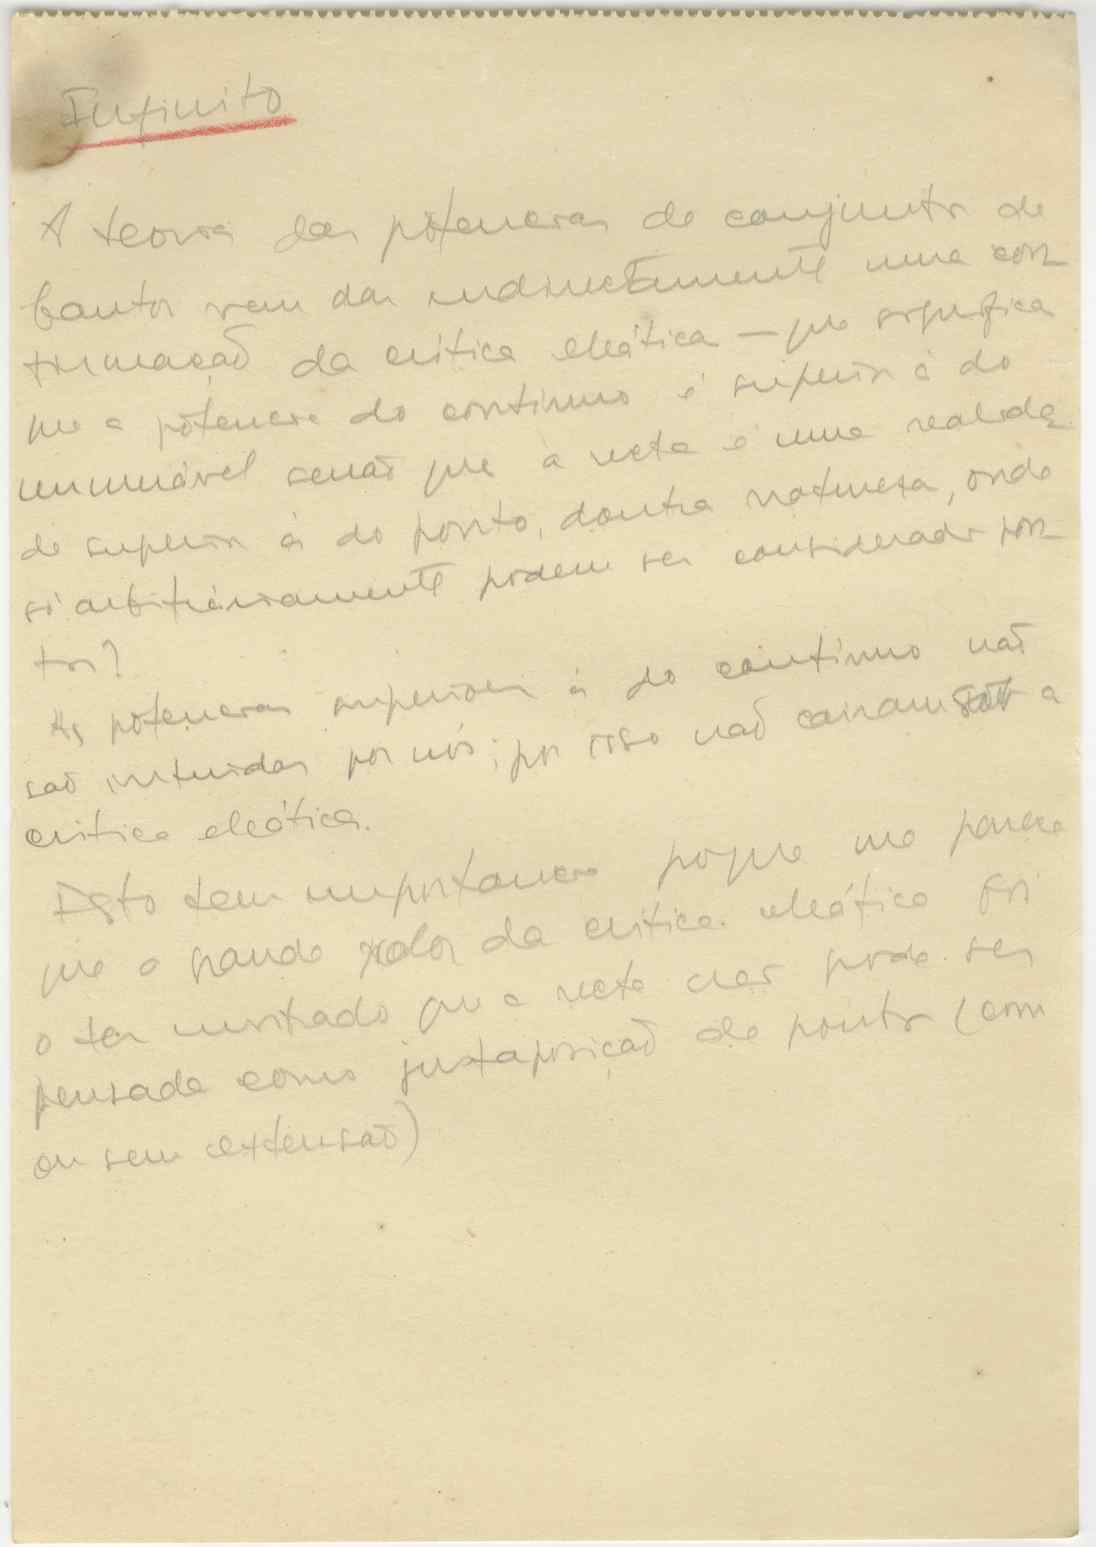 Infinito
A teoria das potencias de conjuntos de
Cantor vem dar indirectamente uma con-
firmação da critica eleática — que significa
que a potencia do continuo é superior á do
numerável senão que a recta é uma realida-
de superior á do ponto, doutra natureza, onde
só arbitráriamente podem ser considerados pon-
tos?
As potencias superiores á do contínuo não
são intuidas por nós; por isso não cairam sob a
critica eleática.
Isto tem importancia porque me parece
que o grande valor da critica eleática foi
o ter mostrado que a recta não pode ser
pensada como justaposição de pontos (com
ou sem extensão)